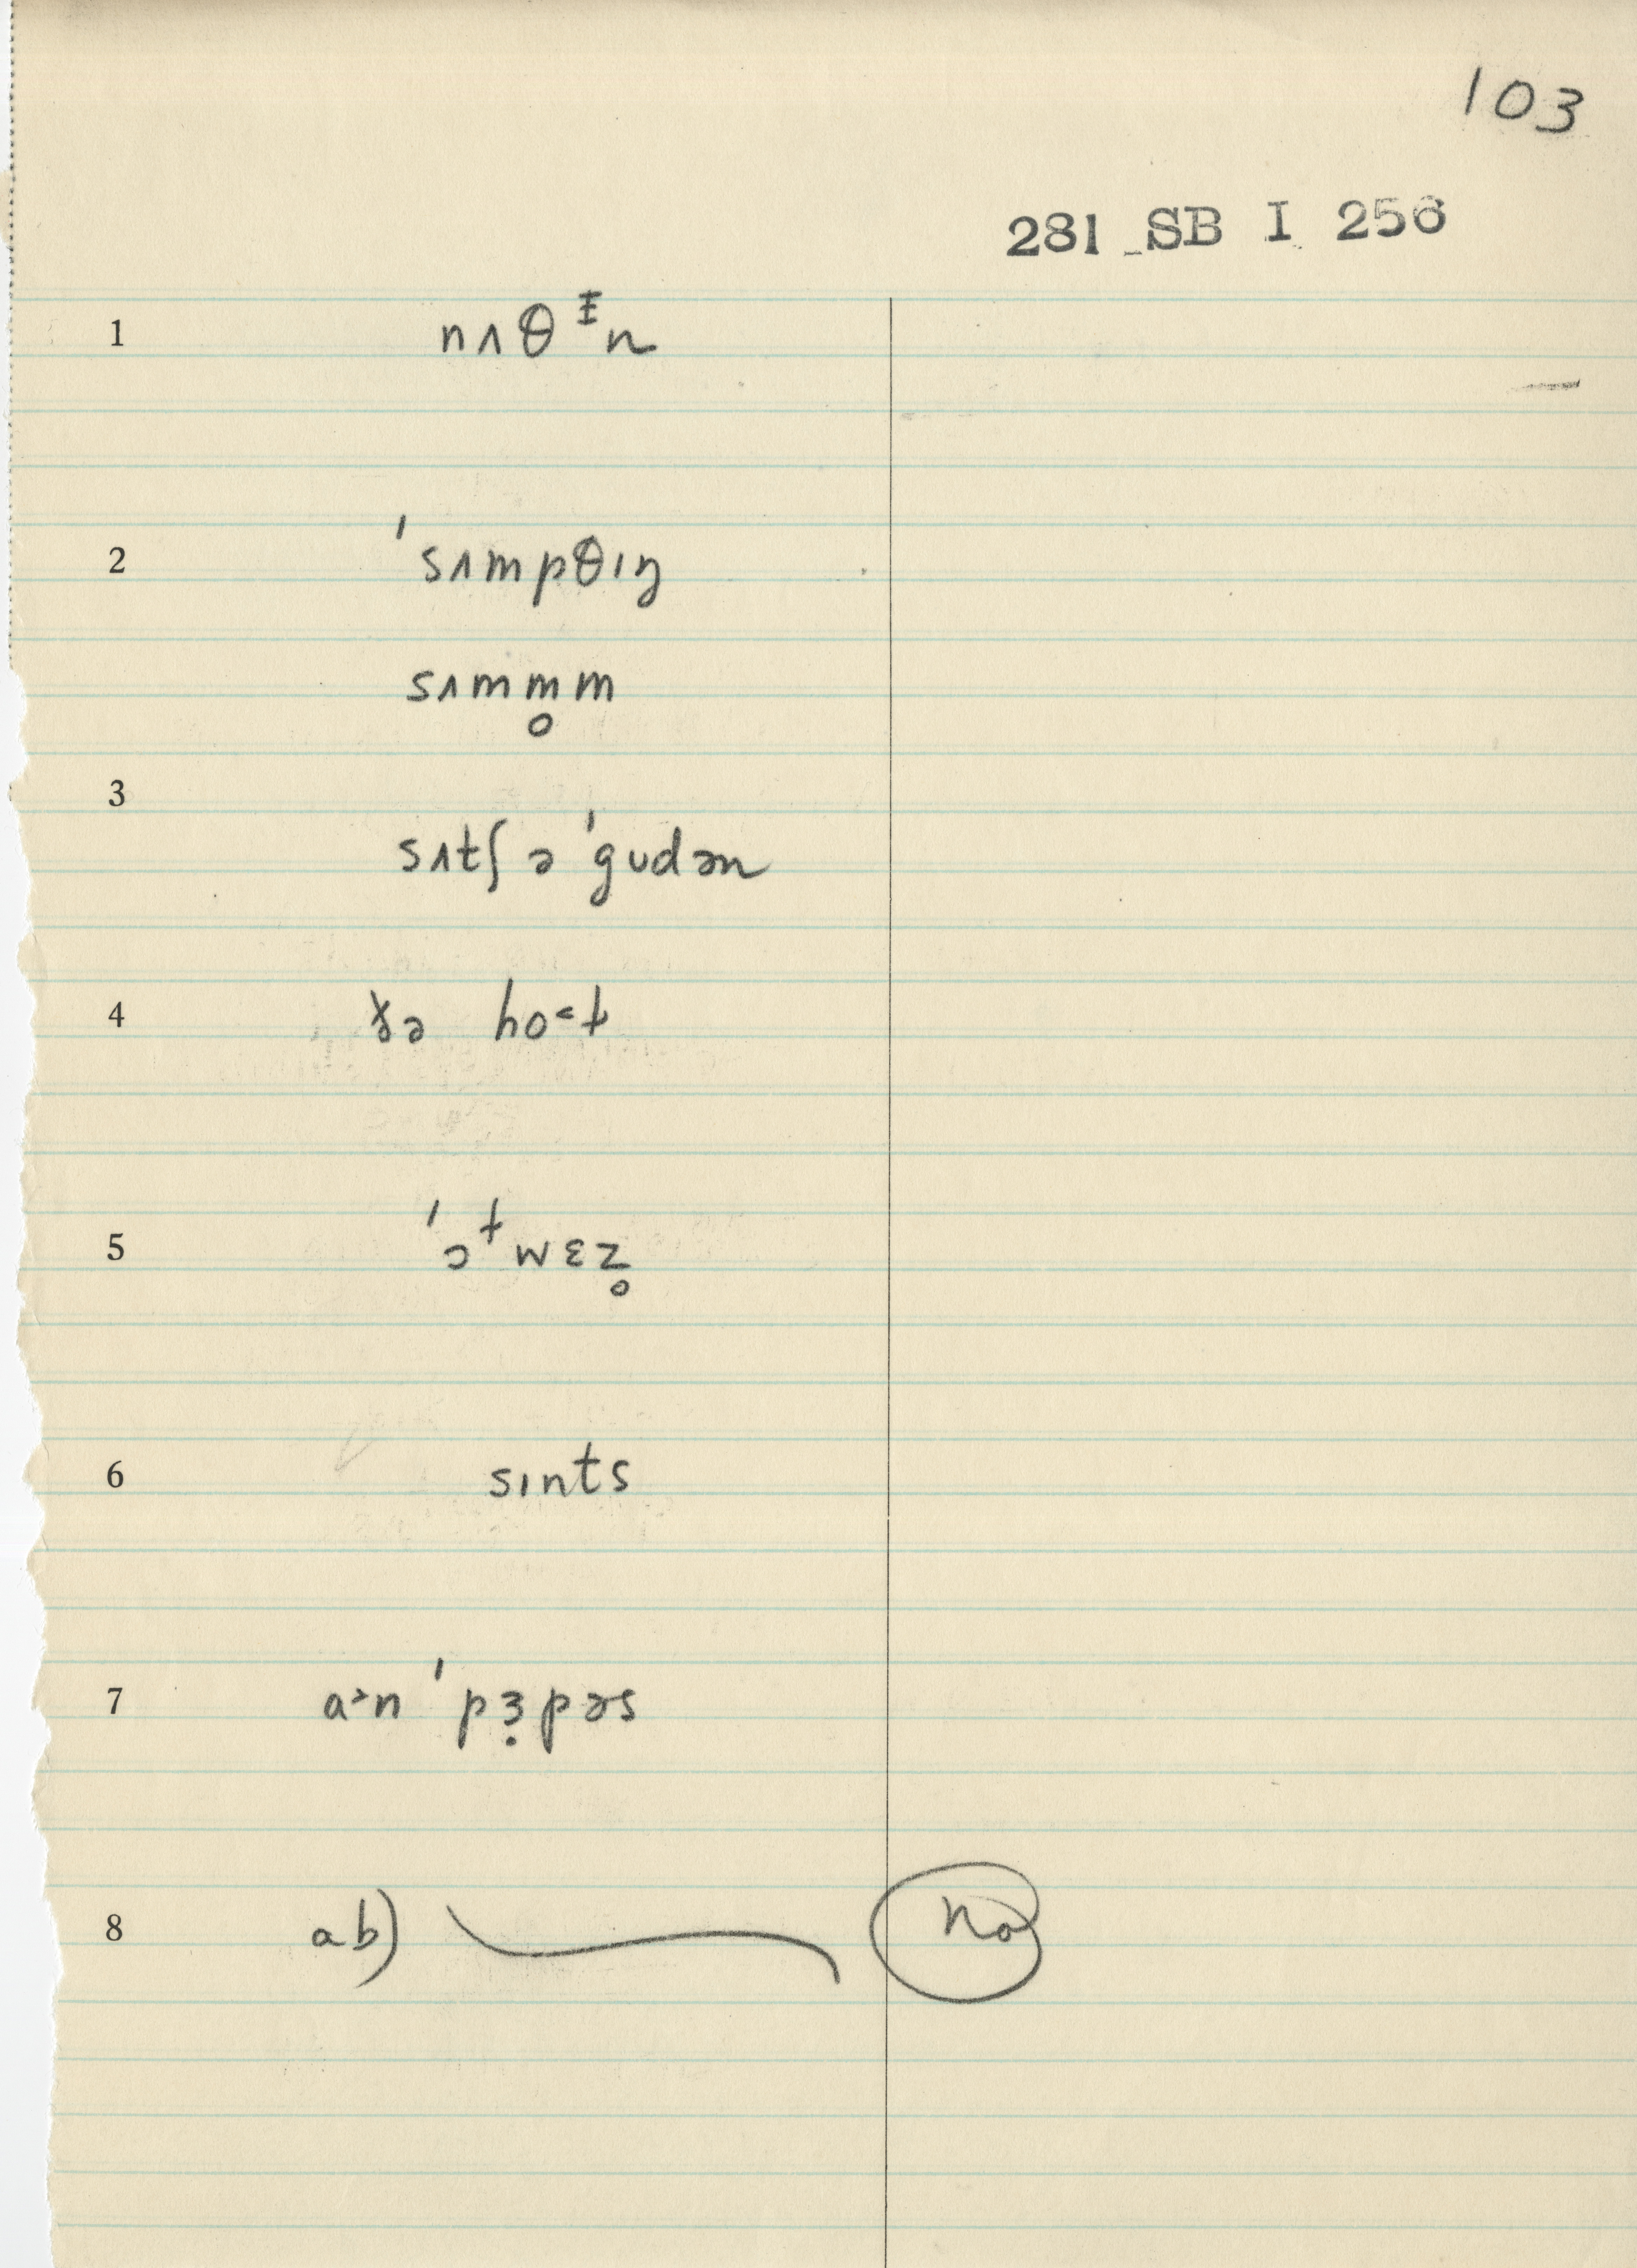 103
281 SB I 256
1 nʌθᵻn
2 ˈsʌmpθɪŋ
sʌmm̥m
3
sʌtʃ ə ˈgudən
4 ðə ho˂t
5 ˈɔᵗwɛz̥
6 sɪnts
7 a˃n ˈpɜ̣pəs
8 ab) No